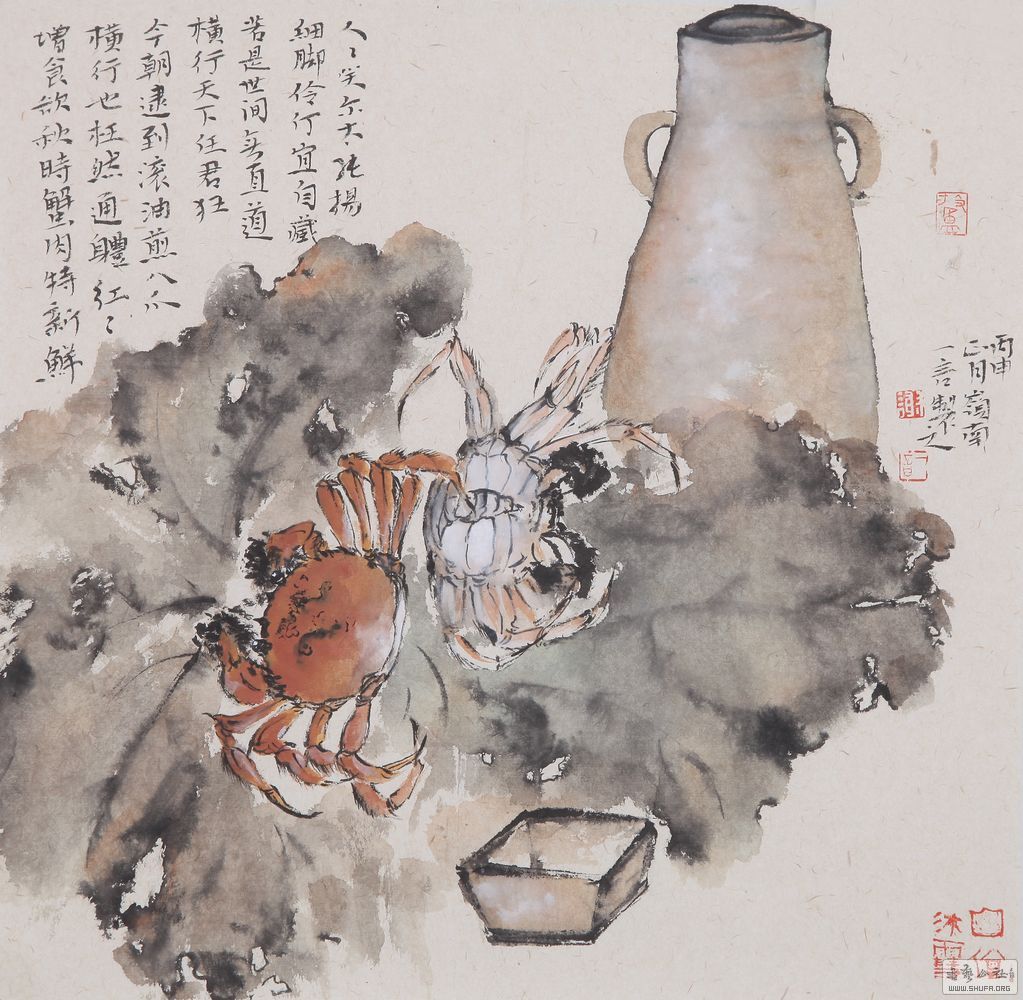 人々笑尔太张揚
細脚伶仃宜自藏
若是世间无直道
橫行天下任君狂
今朝逮到滚油煎八爪
橫行也枉然通體红々
增食欲秋時蟹肉特新鮮
丙申
正月嶺南
一言製之
WWW.SHUFA.ORG